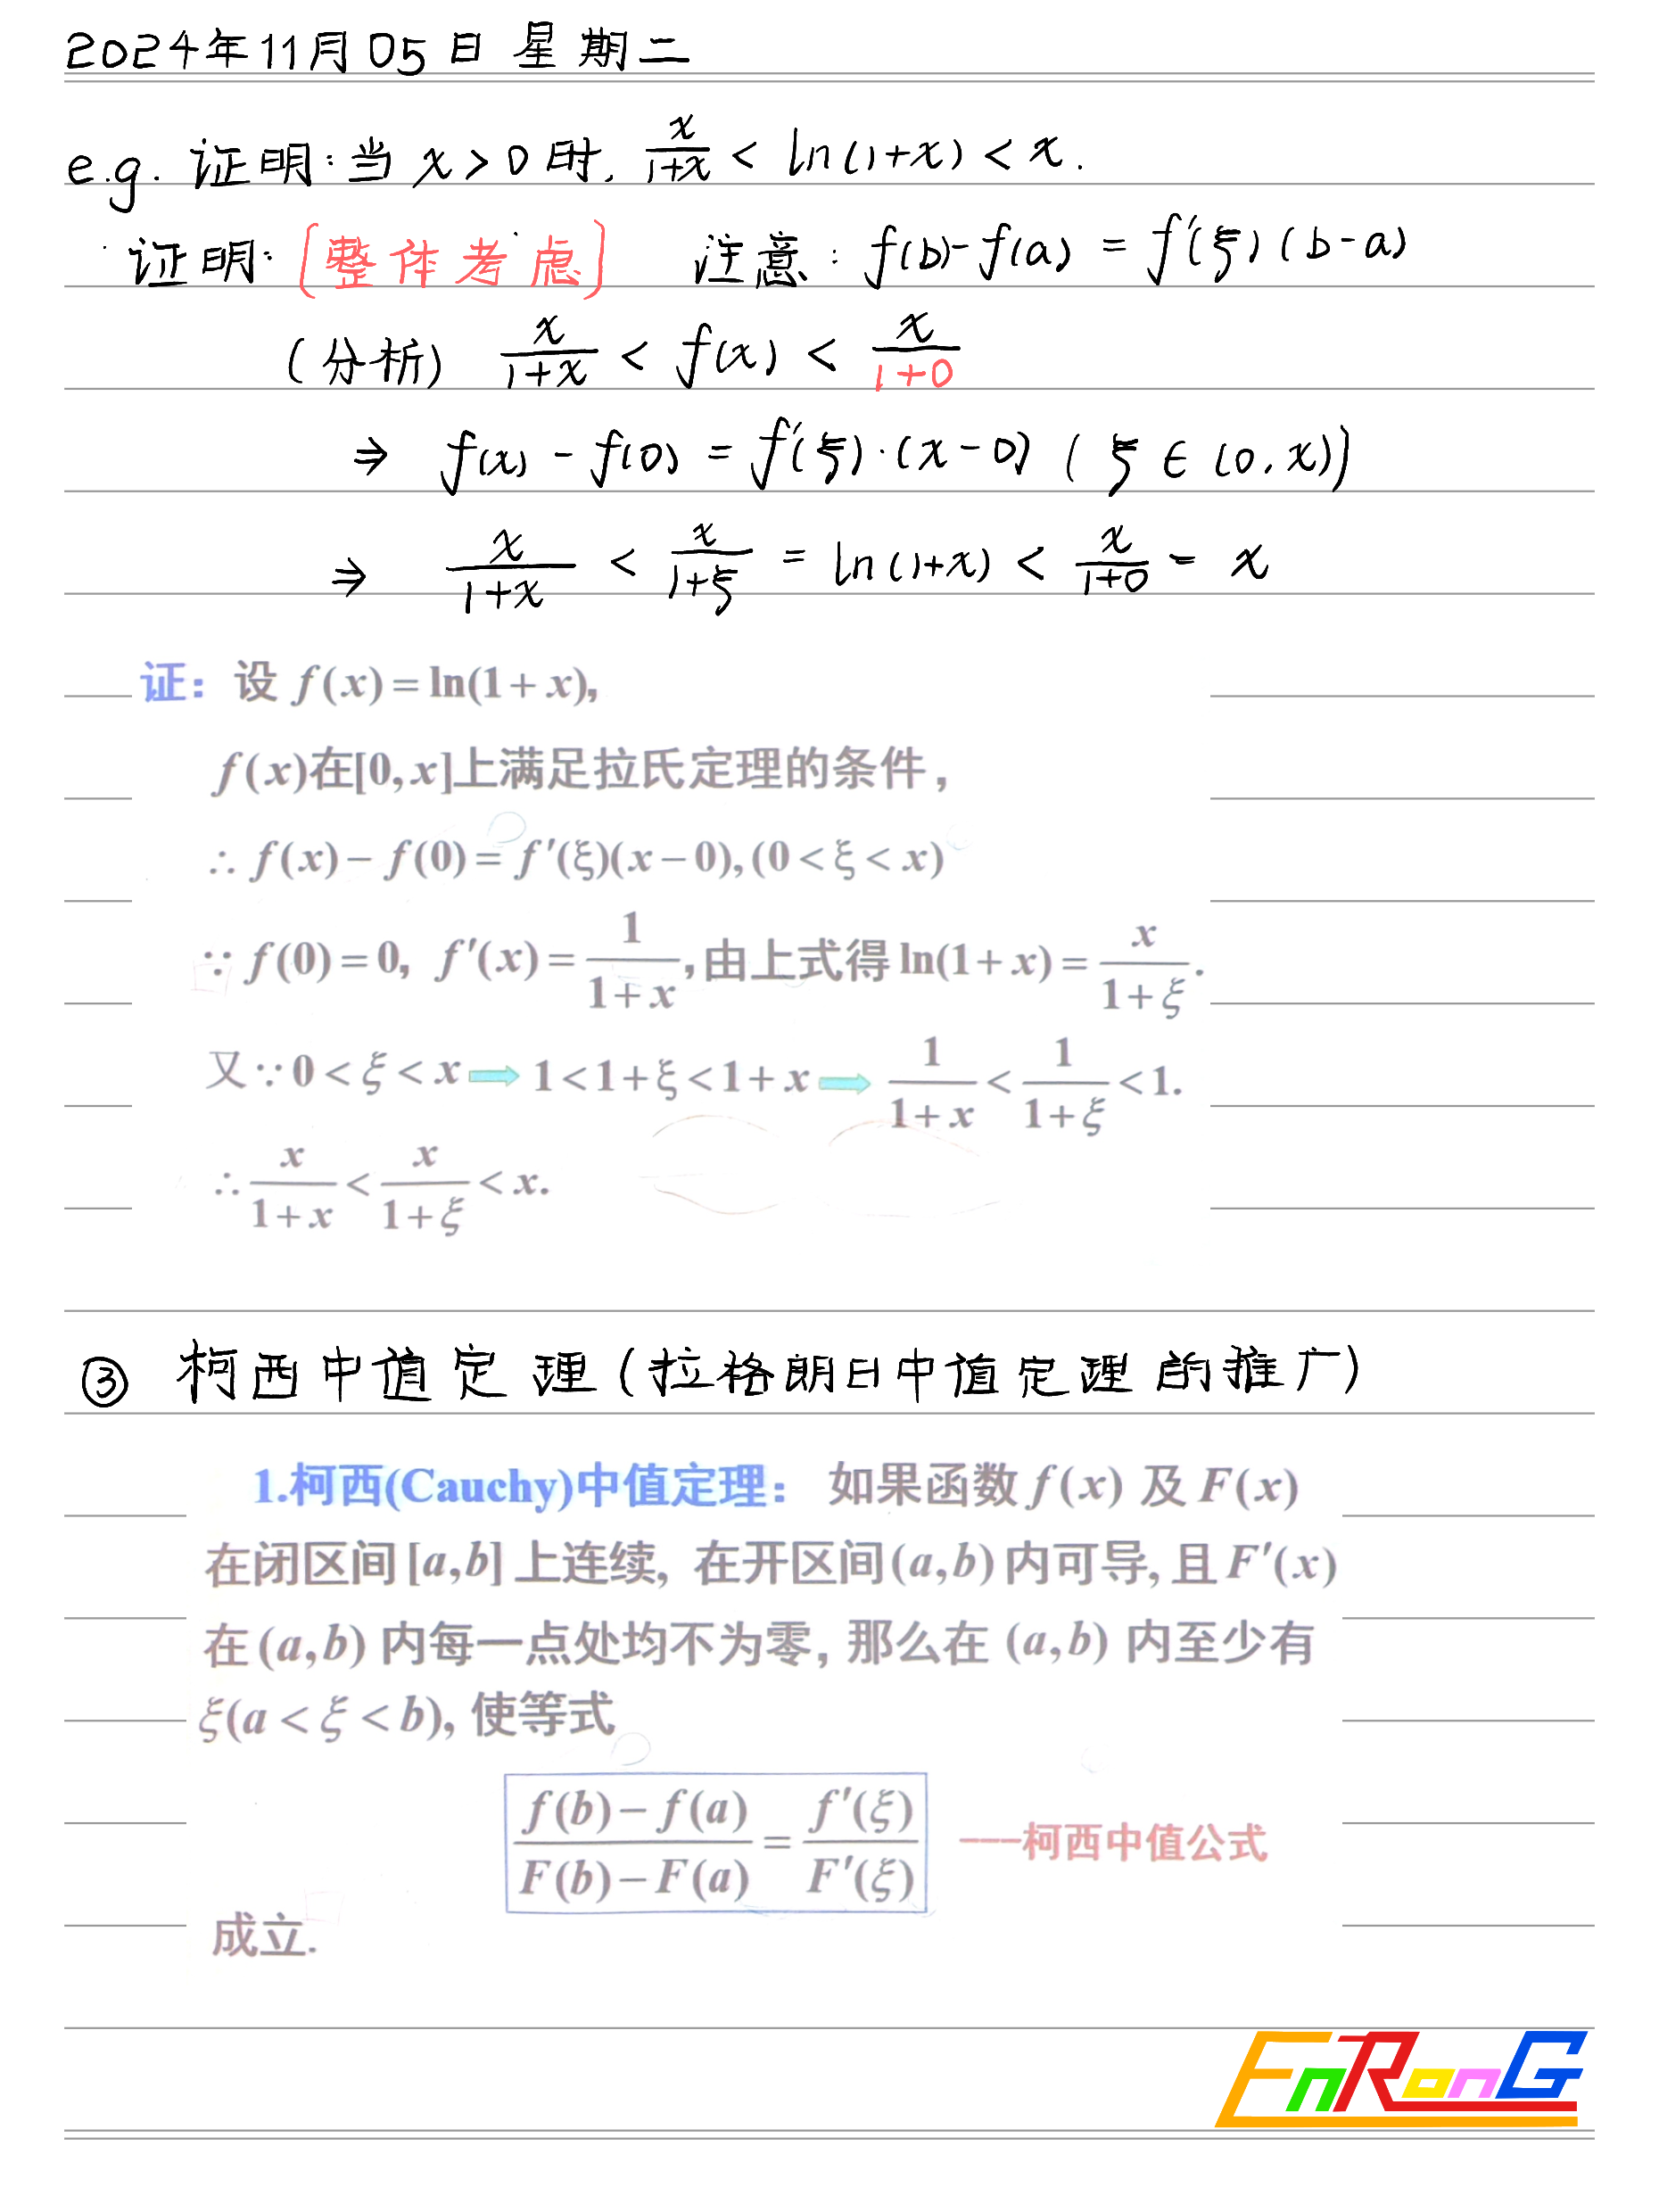 2024年11月05日 星期二
e.g. 证明:当 x>0 时, x/(1+x) < ln(1+x) < x.
证明: [整体考虑] 注意: f(b)-f(a) = f'(ξ)(b-a)
(分析) x/(1+x) < f(x) < x/(1+0)
⇒ f(x) - f(0) = f'(ξ)·(x-0) (ξ∈(0,x))
⇒ x/(1+x) < x/(1+ξ) = ln(1+x) < x/(1+0) = x
证: 设 f(x)=ln(1+x),
f(x)在[0,x]上满足拉氏定理的条件,
∴ f(x)-f(0)=f'(ξ)(x-0),(0<ξ<x)
∵ f(0)=0, f'(x)=1/(1+x),由上式得 ln(1+x)=x/(1+ξ).
又∵0<ξ<x ⇒ 1<1+ξ<1+x ⇒ 1/(1+x)<1/(1+ξ)<1.
∴ x/(1+x)<x/(1+ξ)<x.
③ 柯西中值定理(拉格朗日中值定理的推广)
1.柯西(Cauchy)中值定理: 如果函数 f(x) 及 F(x)
在闭区间[a,b]上连续, 在开区间(a,b)内可导,且F'(x)
在(a,b)内每一点处均不为零,那么在(a,b)内至少有
ξ(a<ξ<b),使等式
(f(b)-f(a))/(F(b)-F(a)) = f'(ξ)/F'(ξ) ---柯西中值公式
成立.
EnRonG